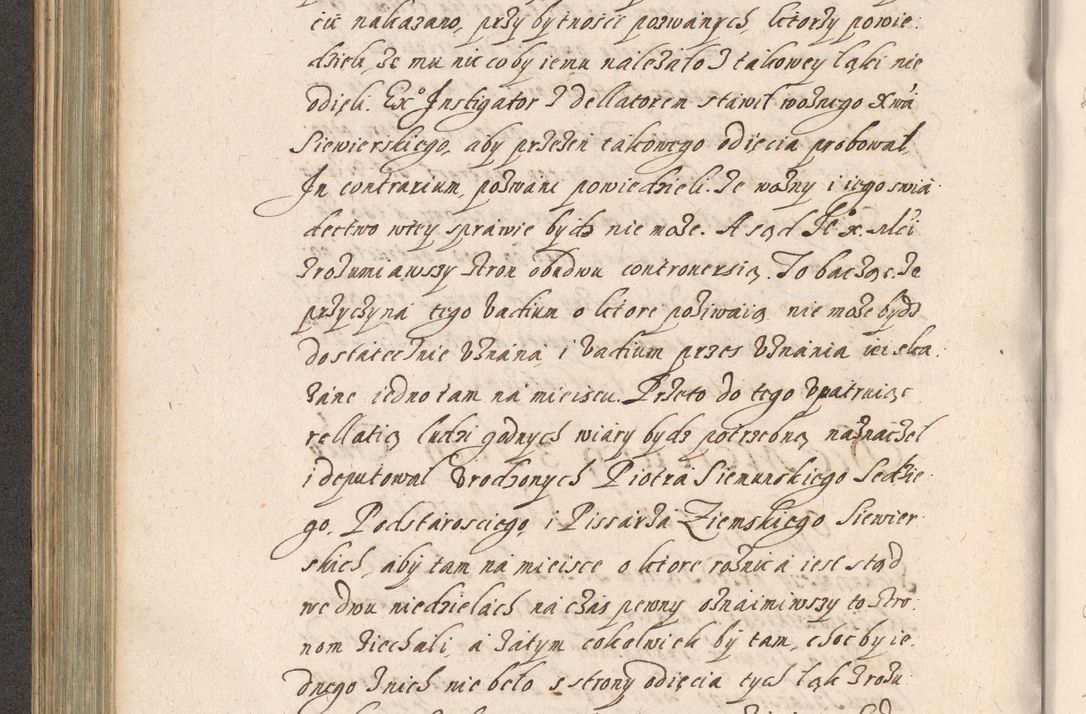 ciu nakazano, przy bytnosci pozwanych, ktorzy powie
dzieli, że mu nic coby iemu należało z takowey łąki nie
odieli. Exo Instigator z dellatorem stawił woźnego Xwá
Siewierskiego, aby przezen takowego odięcia probował,
In contrarium, pozwani powiedzieli. że woźny i iego swia
dectwo wtey spráwie bydz nie może. A sąd Je° x. Mći
zrozumiawszy stron obudwu controuersią. To bacząc. że
przyczyná tego vadium o ktore pozywaią nie może bydz
dostatecznie vznáná i vadium przes vznánia iei ska
záne iedno tam ná mieiscu. Przeto do tego vpatruiąc
rellatią ludzi godnych wiáry bydz potrzebną náznáczel
i deputował vrodzonych Piotrá Siemunskiego Sedzie
go, Podstárosciego, i Pissárzá Ziemskiego Siewier
skich, aby tam ná mieisce o ktore rożnica iest stąd
we dwu niedzielách ná czás pewny oznaimiwszy to stro
nom ziechali, a zátym cokolwiek by tam, choćby ie
dnego znich nie beło s strony odięcia tych łąk zrozu